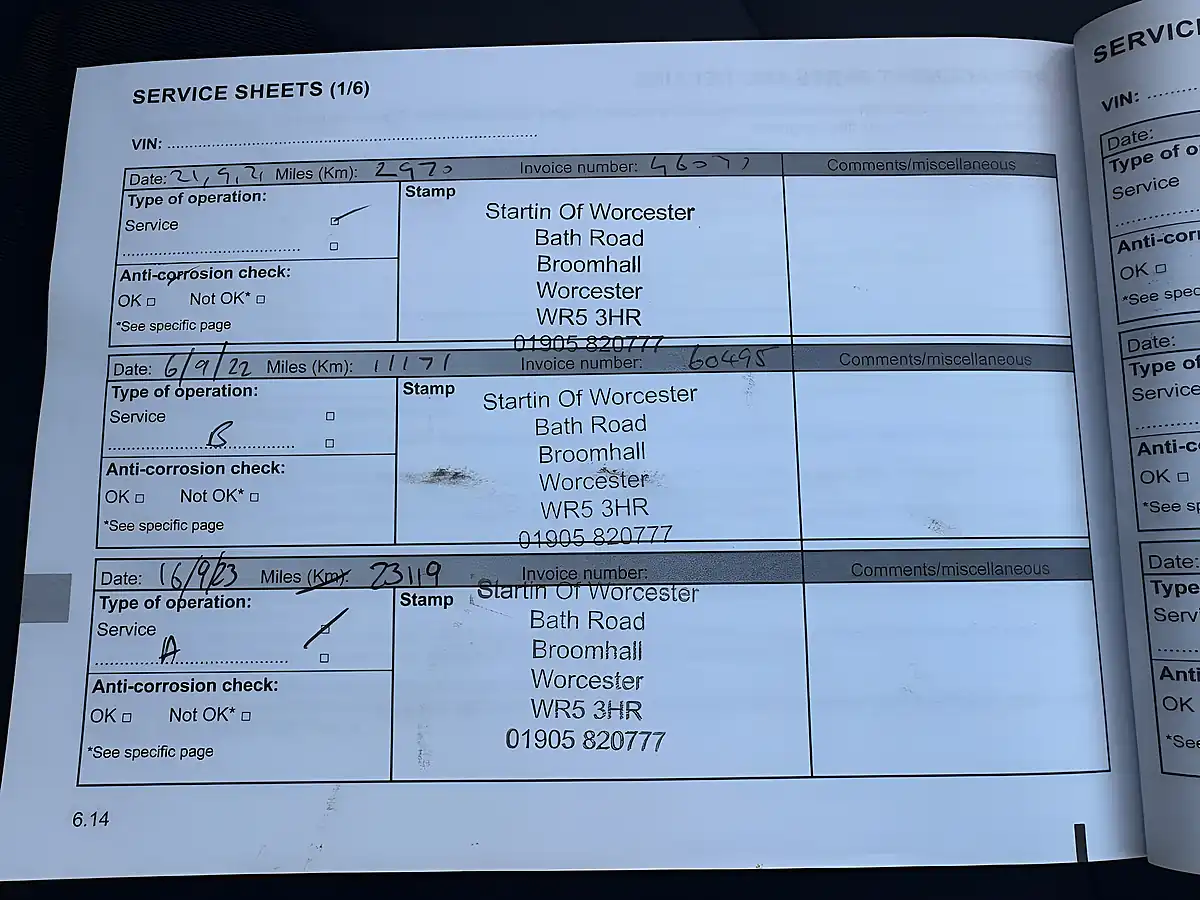 SERVICE SHEETS (1/6)
VIN:
Date: 21,9,21 Miles (Km): 2970 Invoice number: 46077 Comments/miscellaneous
Type of operation:
Service
Anti-corrosion check:
OK □ Not OK* □
*See specific page
Stamp
Startin Of Worcester
Bath Road
Broomhall
Worcester
WR5 3HR
01905 820777
Date: 6/9/22 Miles (Km): 11171 Invoice number: 60495 Comments/miscellaneous
Type of operation:
Service
B
Anti-corrosion check:
OK □ Not OK* □
*See specific page
Stamp
Startin Of Worcester
Bath Road
Broomhall
Worcester
WR5 3HR
01905 820777
Date: 16/9/23 Miles (Km): 23119 Invoice number: Comments/miscellaneous
Type of operation:
Service
A
Anti-corrosion check:
OK □ Not OK* □
*See specific page
Stamp
Startin Of Worcester
Bath Road
Broomhall
Worcester
WR5 3HR
01905 820777
6.14
SERVIC
VIN:
Date:
Type of o
Service
Anti-corr
OK □
*See spec
Date:
Type of
Service
Anti-c
OK □
*See sp
Date:
Type
Serv
Anti
OK
*See